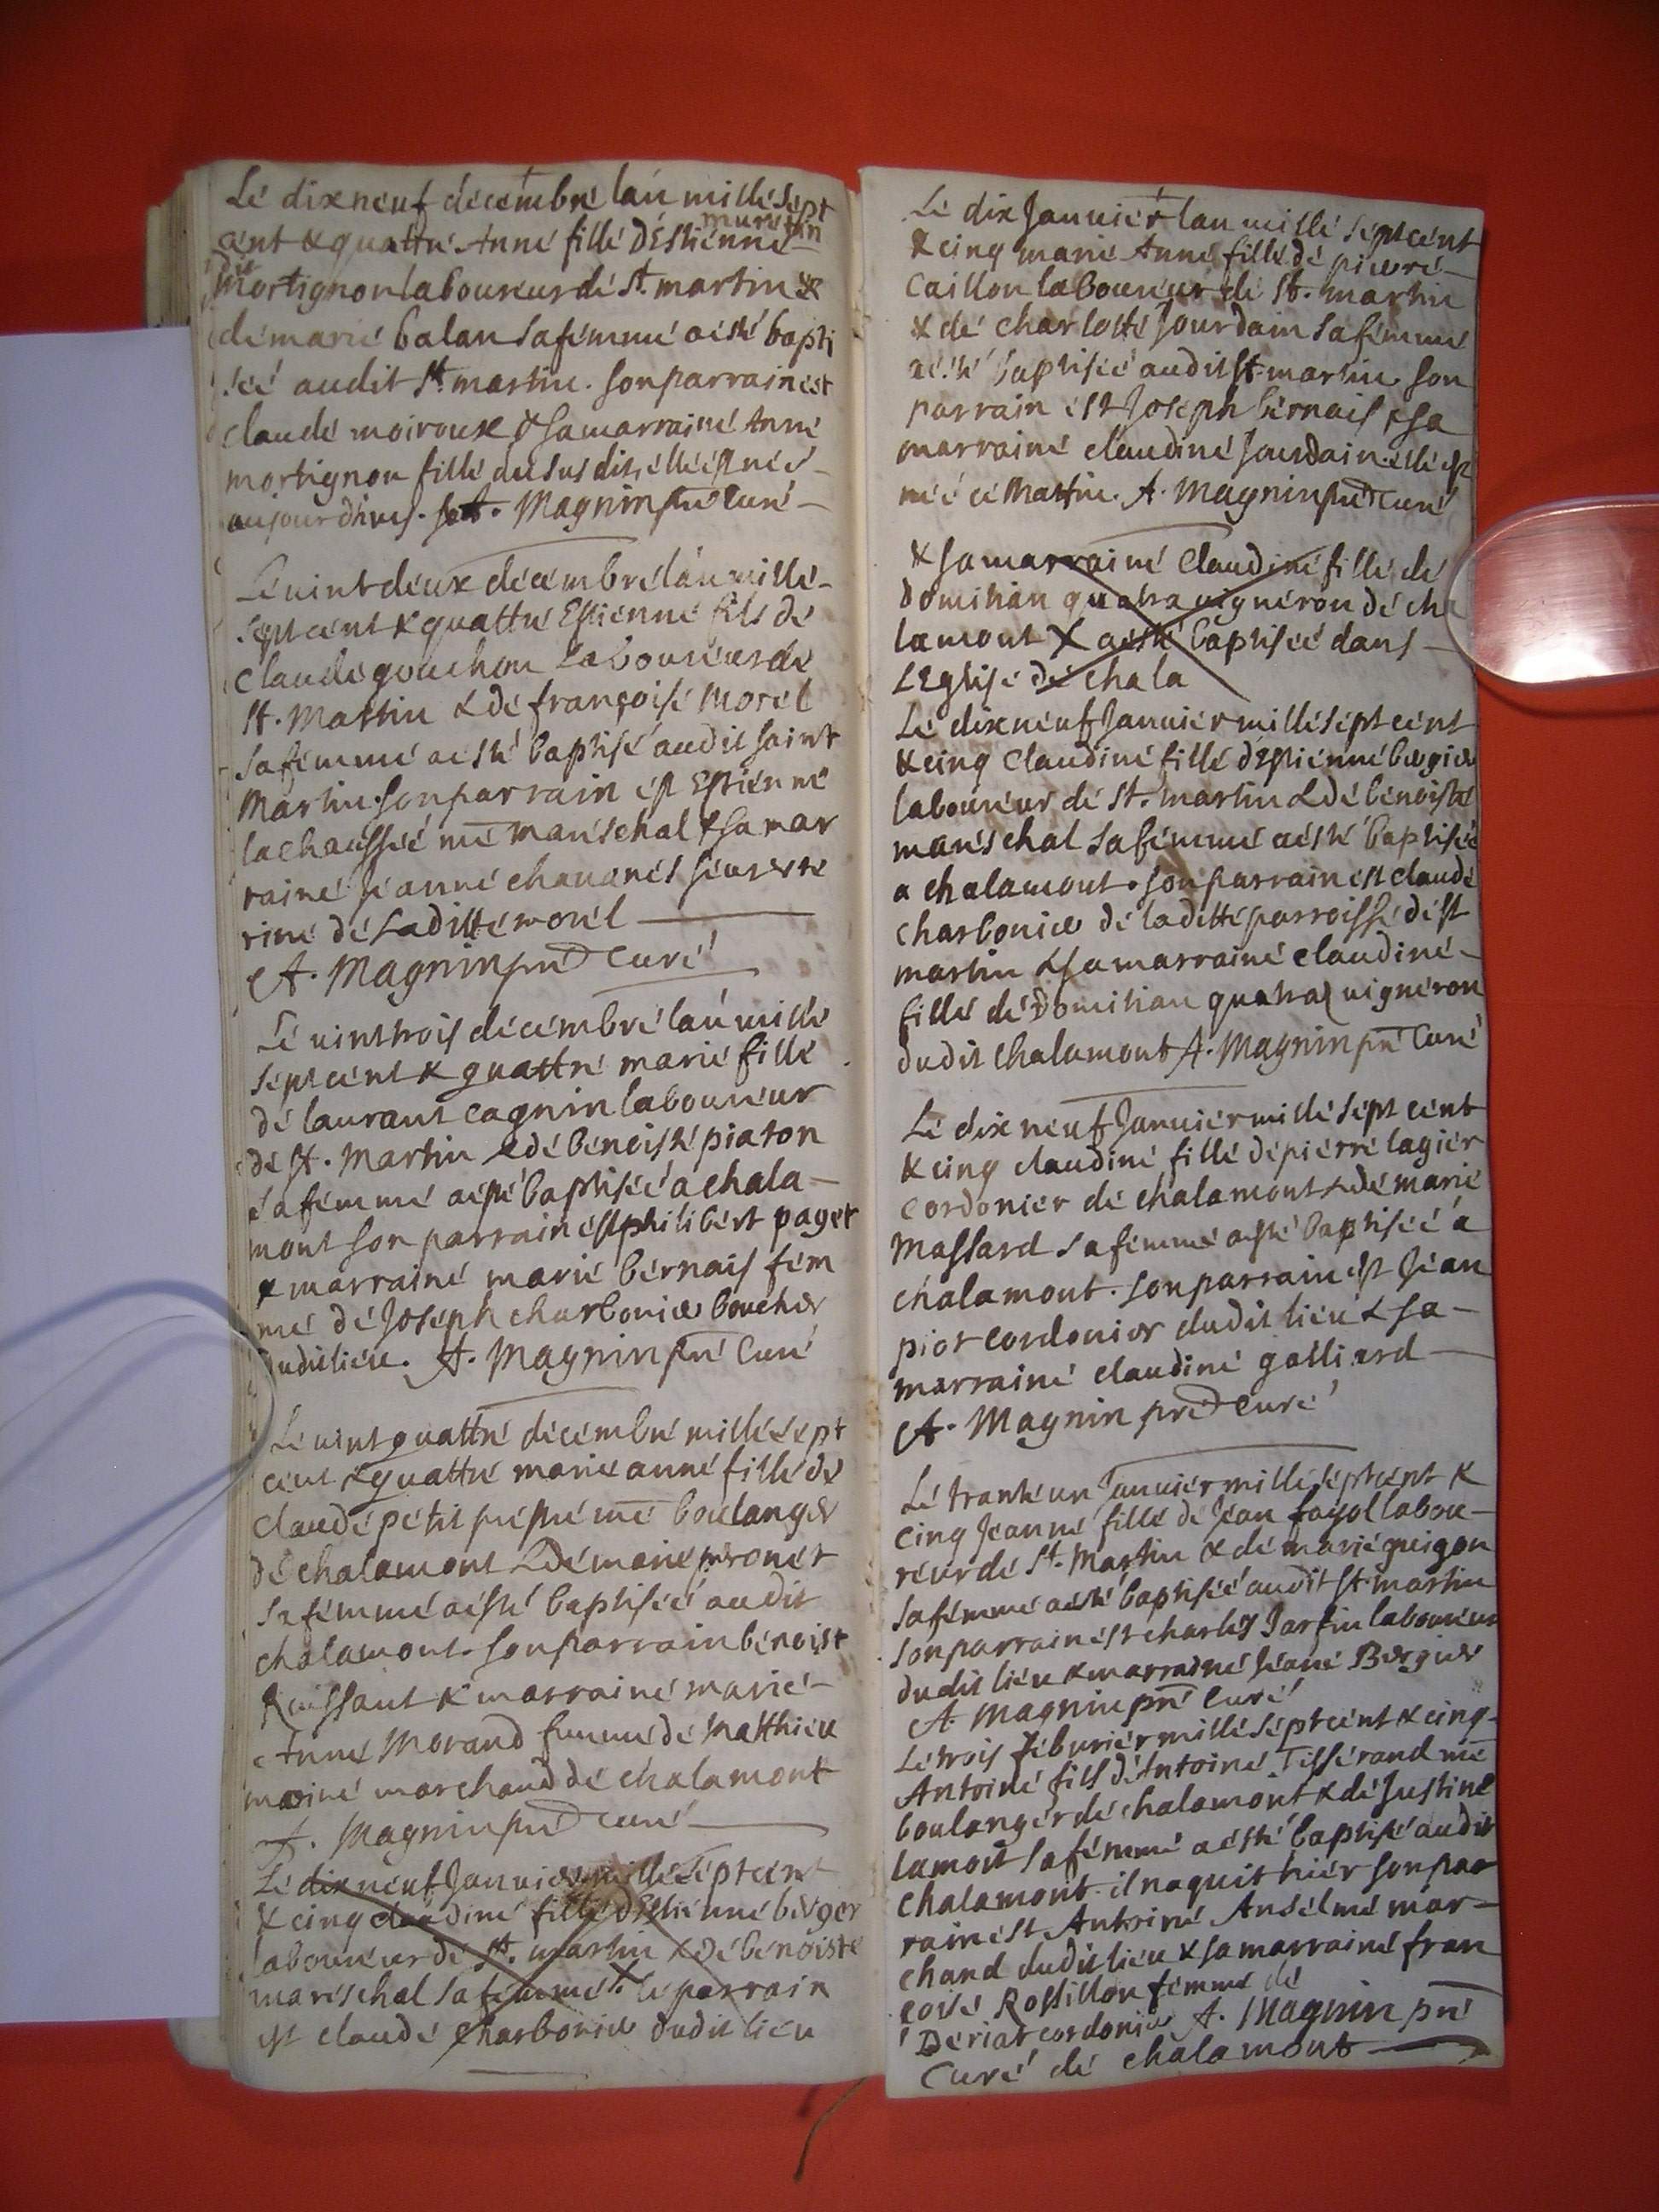 Lé dixneuf décémbré lan millé sépt
cent & quattré Anné fillé dEstiénné
muretin
Mortignon laboureur dé St. martin &
dé marié balan sa fémmé a ésté bapti
séé audit St. martin. son parrain est
claudé moiroux & sa marrainé Anné
mortignon fillé du susdit, éllé ést néé
aujourdhuy. A. Magnin pré curé
Lé vint deux décémbré lan millé
sépt cent & quattré Estiénné fils dé
claudé gouchon laboureur dé
St. Martin & dé françoisé Morél
sa fémmé a ésté baptisé audit saint
Martin. son parrain ést Estiénné
lachausséé mé maréschal & sa mar
rainé Jéanné chavanés séur
riné dé laditté morél
A. Magnin pré Curé
Lé vint trois décémbré lan millé
sépt cent & quattré marié fillé
dé laurant cagnin laboureur
dé St. Martin & dé bénoisté piaton
sa fémmé a ésté baptiséé a chala
mont son parrain ést philibért paget
& marrainé marié bérnais fém
mé dé Joséph charbonier bouchér
dudit liéu. A. Magnin pré Curé
Lé vint quattré décémbré millé sépt
cent & quattré marié anné fillé dé
claudé pétit mé boulanger
dé chalamont & dé marié péronét
sa fémmé a ésté baptiséé audit
chalamont. son parrain bénoist
Ruissant & marrainé marié
Anné Morand femmé dé Matthiéu
mariné marchand dé chalamont
A. Magnin pré curé
Lé dixneuf Janvier millé sépt cent
& cinq claudiné fillé dEstiénné bérger
laboureur dé St. martin & dé bénoisté
maréschal sa fémmé. le parrain
ést claudé charbonier dudit liéu
Lé dix Janviér lan millé sépt cént
& cinq marié Anné fillé dé piérré
Caillon laboureur dé St. Martin
& dé charlotté Jourdain sa fémmé
a ésté baptiséé audit St martin. son
parrain ést Joséph bérnais & sa
marrainé claudiné Jourdain. éllé ést
néé cé Matin. A. Magnin pré Curé
& sa marrainé Claudiné fillé dé
domitian quatra vignéron dé cha
lamont & a ésté baptiséé dans
LEglisé dé chala
Lé dixneuf Janviér millé sépt cént
& cinq Claudiné fillé dEstiénné bergier
laboureur dé St. Martin & dé bénoisté
maréschal sa fémmé a ésté baptiséé
a chalamont. son parrain ést claudé
charbonier dé laditté parroissé dé St
martin & sa marrainé claudiné
fillé dé Domitian quatra vignéron
dudit chalamont A. Magnin pré Curé
Lé dix neuf Janviér millé sépt cént
& cinq claudiné fillé dé piérré lagiér
cordonier dé chalamont & dé marié
Massard sa fémmé a ésté baptiséé a
chalamont. son parrain ést Jéan
piot cordonier dudit liéu & sa
marrainé claudiné galliard
A. Magnin pré Curé
Lé tranté un Janviér millé séptcént &
cinq Jéanné fillé dé Jéan fayol labou
réur dé St. Martin & dé marié guigon
sa fémmé a ésté baptiséé audit St. martin
son parrain ést charlés Jartin laboureur
dudit liéu & marrainé Jéané Bergier
A. Magnin pré Curé
Lé trois fébvriér millé sépt cént & cinq
Antoiné fils dAntoiné Tissérand mé
boulangér dé chalamont & dé Justiné
lamout sa fémmé a ésté baptisé audit
chalamont. il naquit hiér son par
rain ést Antoiné Ansélmé mar
chand dudit liéu & sa marrainé fran
coisé Rostillon fémmé dé
Dériat cordonier A. Magnin pré
Curé dé chalamont